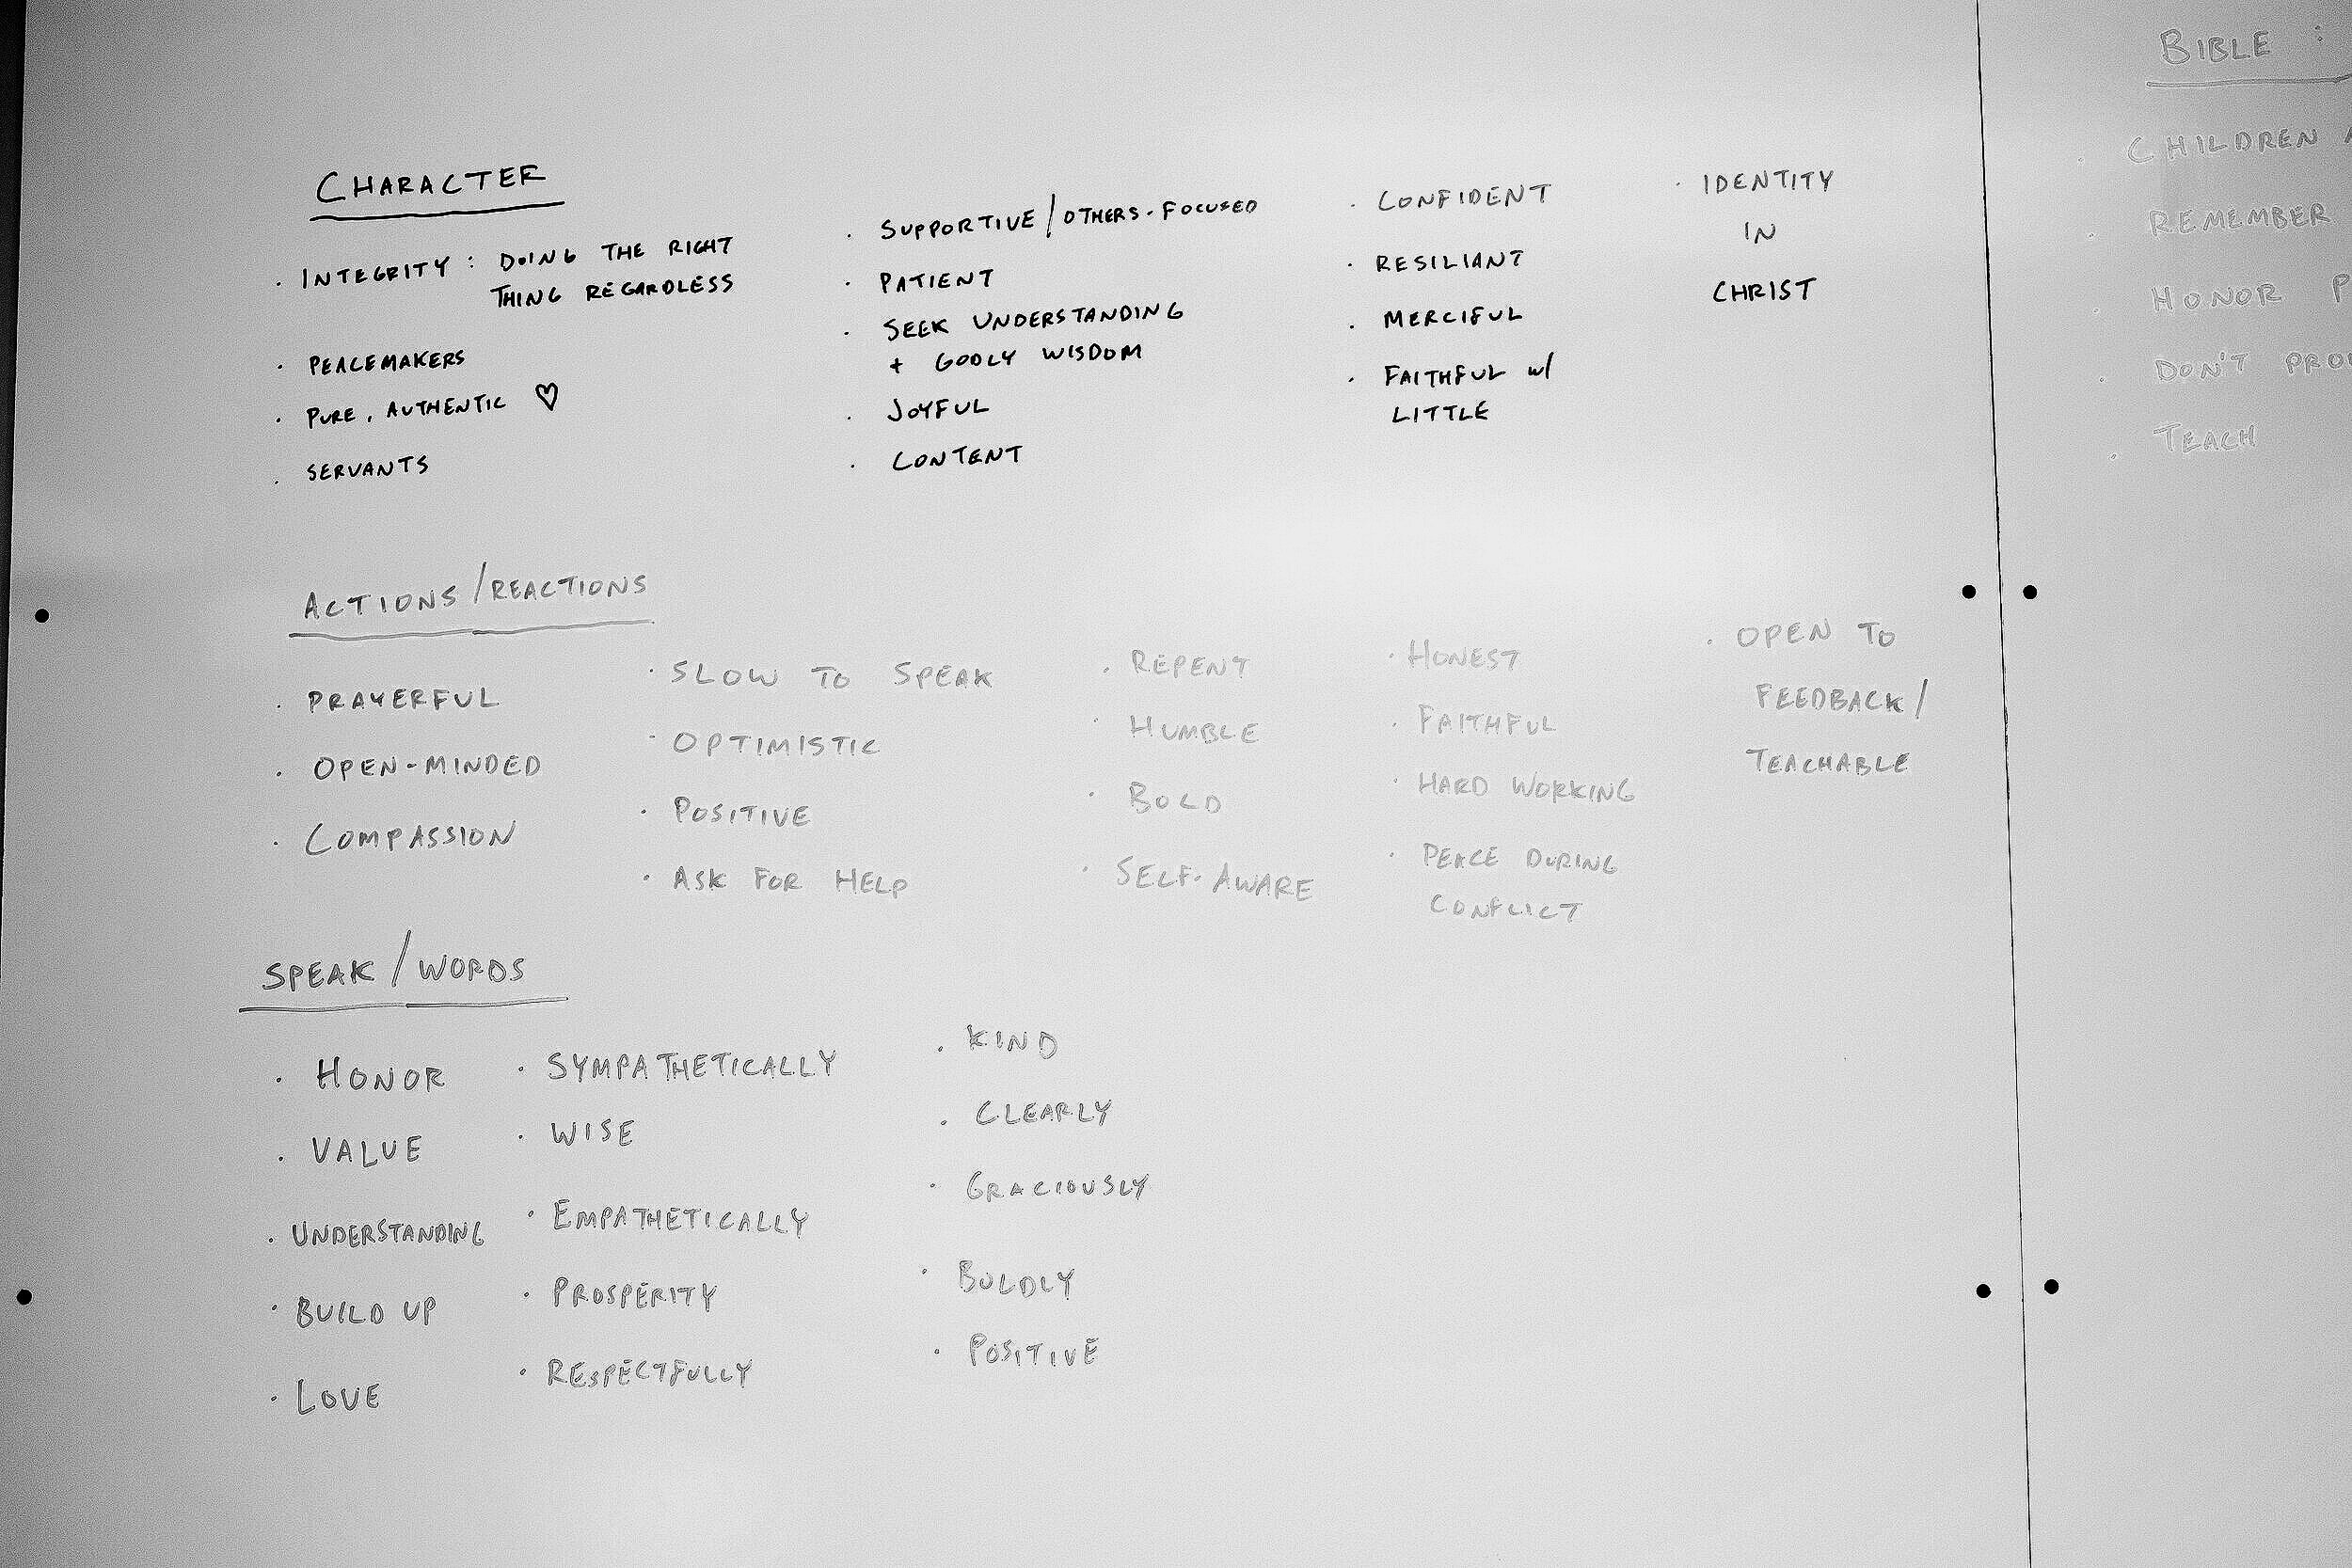 CHARACTER
· INTEGRITY : DOING THE RIGHT
THING REGARDLESS
· PEACEMAKERS
· PURE, AUTHENTIC ♡
· SERVANTS
· SUPPORTIVE/OTHERS-FOCUSED
· PATIENT
· SEEK UNDERSTANDING
+ GODLY WISDOM
· JOYFUL
· CONTENT
· CONFIDENT
· RESILIANT
· MERCIFUL
· FAITHFUL w/
LITTLE
· IDENTITY
IN
CHRIST
ACTIONS/REACTIONS
· PRAYERFUL
· OPEN-MINDED
· COMPASSION
· SLOW TO SPEAK
· OPTIMISTIC
· POSITIVE
· ASK FOR HELP
· REPENT
· HUMBLE
· BOLD
· SELF-AWARE
· HONEST
· FAITHFUL
· HARD WORKING
· PEACE DURING
CONFLICT
· OPEN TO
FEEDBACK/
TEACHABLE
SPEAK/WORDS
· HONOR
· VALUE
· UNDERSTANDING
· BUILD UP
· LOVE
· SYMPATHETICALLY
· WISE
· EMPATHETICALLY
· PROSPERITY
· RESPECTFULLY
· KIND
· CLEARLY
· GRACIOUSLY
· BOLDLY
· POSITIVE
BIBLE :
· CHILDREN
· REMEMBER
· HONOR
· DON'T
· TEACH